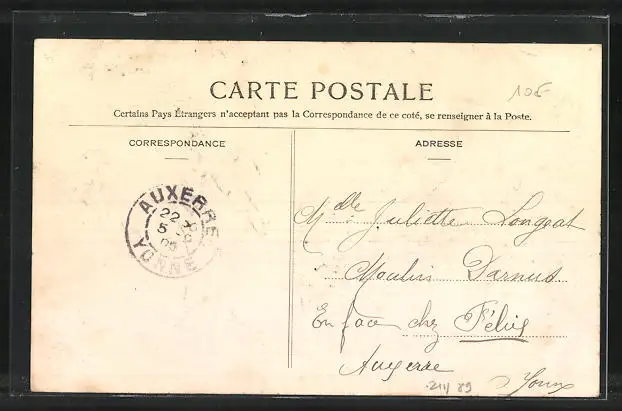 CARTE POSTALE
Certains Pays Étrangers n'acceptant pas la Correspondance de ce coté, se renseigner à la Poste.
CORRESPONDANCE
ADRESSE
AUXERRE
22
5
YONNE
Mdlle Juliette Longeat
Moulin Darnus
En face chez Félix
Auxerre
Yonne